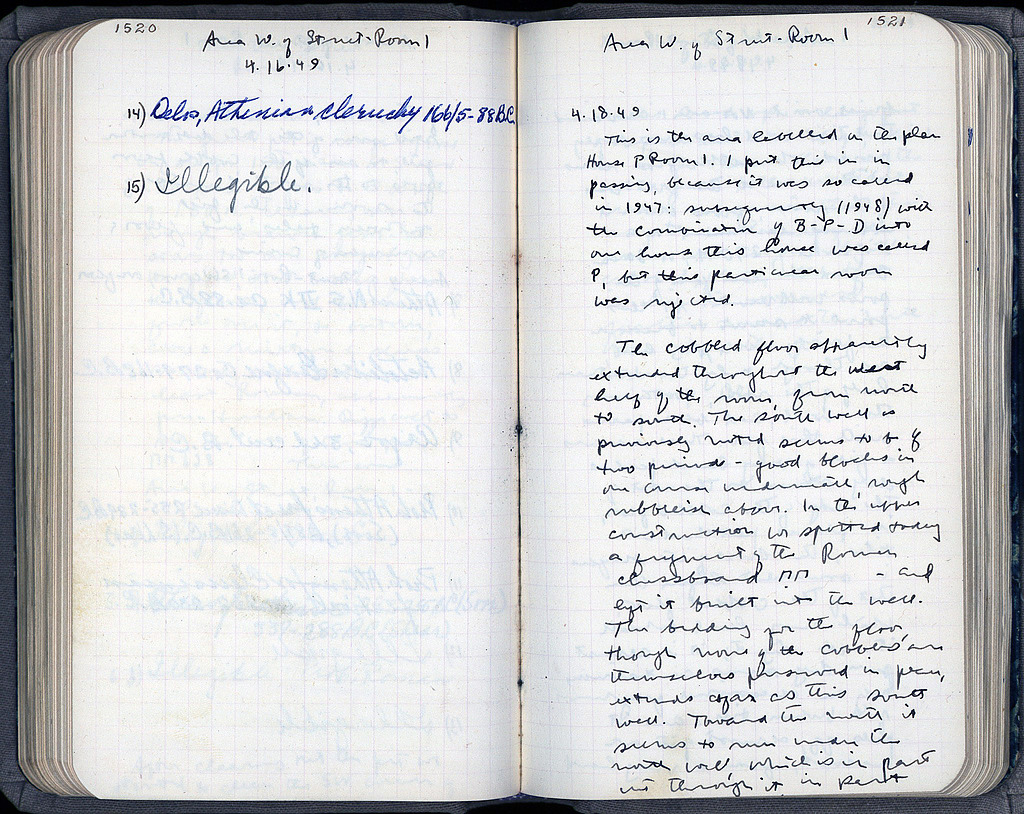 1520
Area W. of Struct-Room 1
4.16.49
14) Delos, Athenian cleruchy 166/5-88 B.C.
15) Illegible.
1521
Area W. of Struct-Room 1
4.18.49
This is the area labelled on the plan
House P Room 1. I put this in in
passing, because it was so called
in 1947: subsequently (1948) with
the combination of B-P-D into
one house this house was called
P, but this particular room
was rejected.
The cobbled floor apparently
extended throughout the west
half of the room, from north
to south. The south wall as
previously noted seems to be of
two periods - good blocks in
one course underneath, rough
rubbleish above. In the upper
construction we spotted today
a fragment of the Roman
- and
left it built into the wall.
The bedding for the floor,
though none of the cobbles are
themselves preserved in place,
extends as far as this south
wall. Toward the north it
seems to run under the
north wall which is in part
cut through it, in part